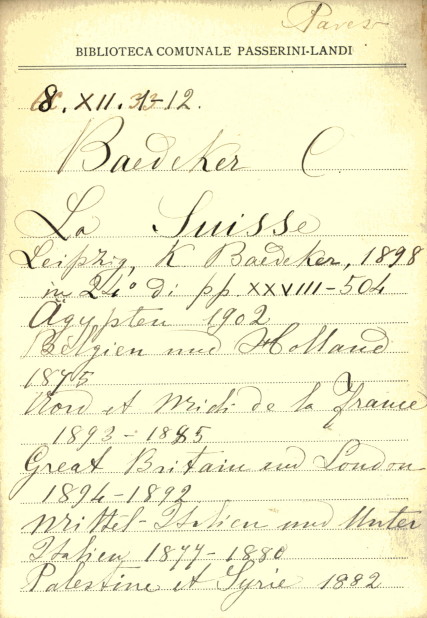 Pares
BIBLIOTECA COMUNALE PASSERINI-LANDI
8. XII. 1-12.
Baedeker C.
La Suisse
Leipzig, K Baedeker, 1898
in 24° di pp. XXVIII-504
Ägypten 1902
Belgien und Holland
1875
Nord et Midi de la France
1893-1885
Great Britain and London
1894-1892
Mittel-Italien und Unter
Italien 1877-1880
Palestine et Syrie 1882